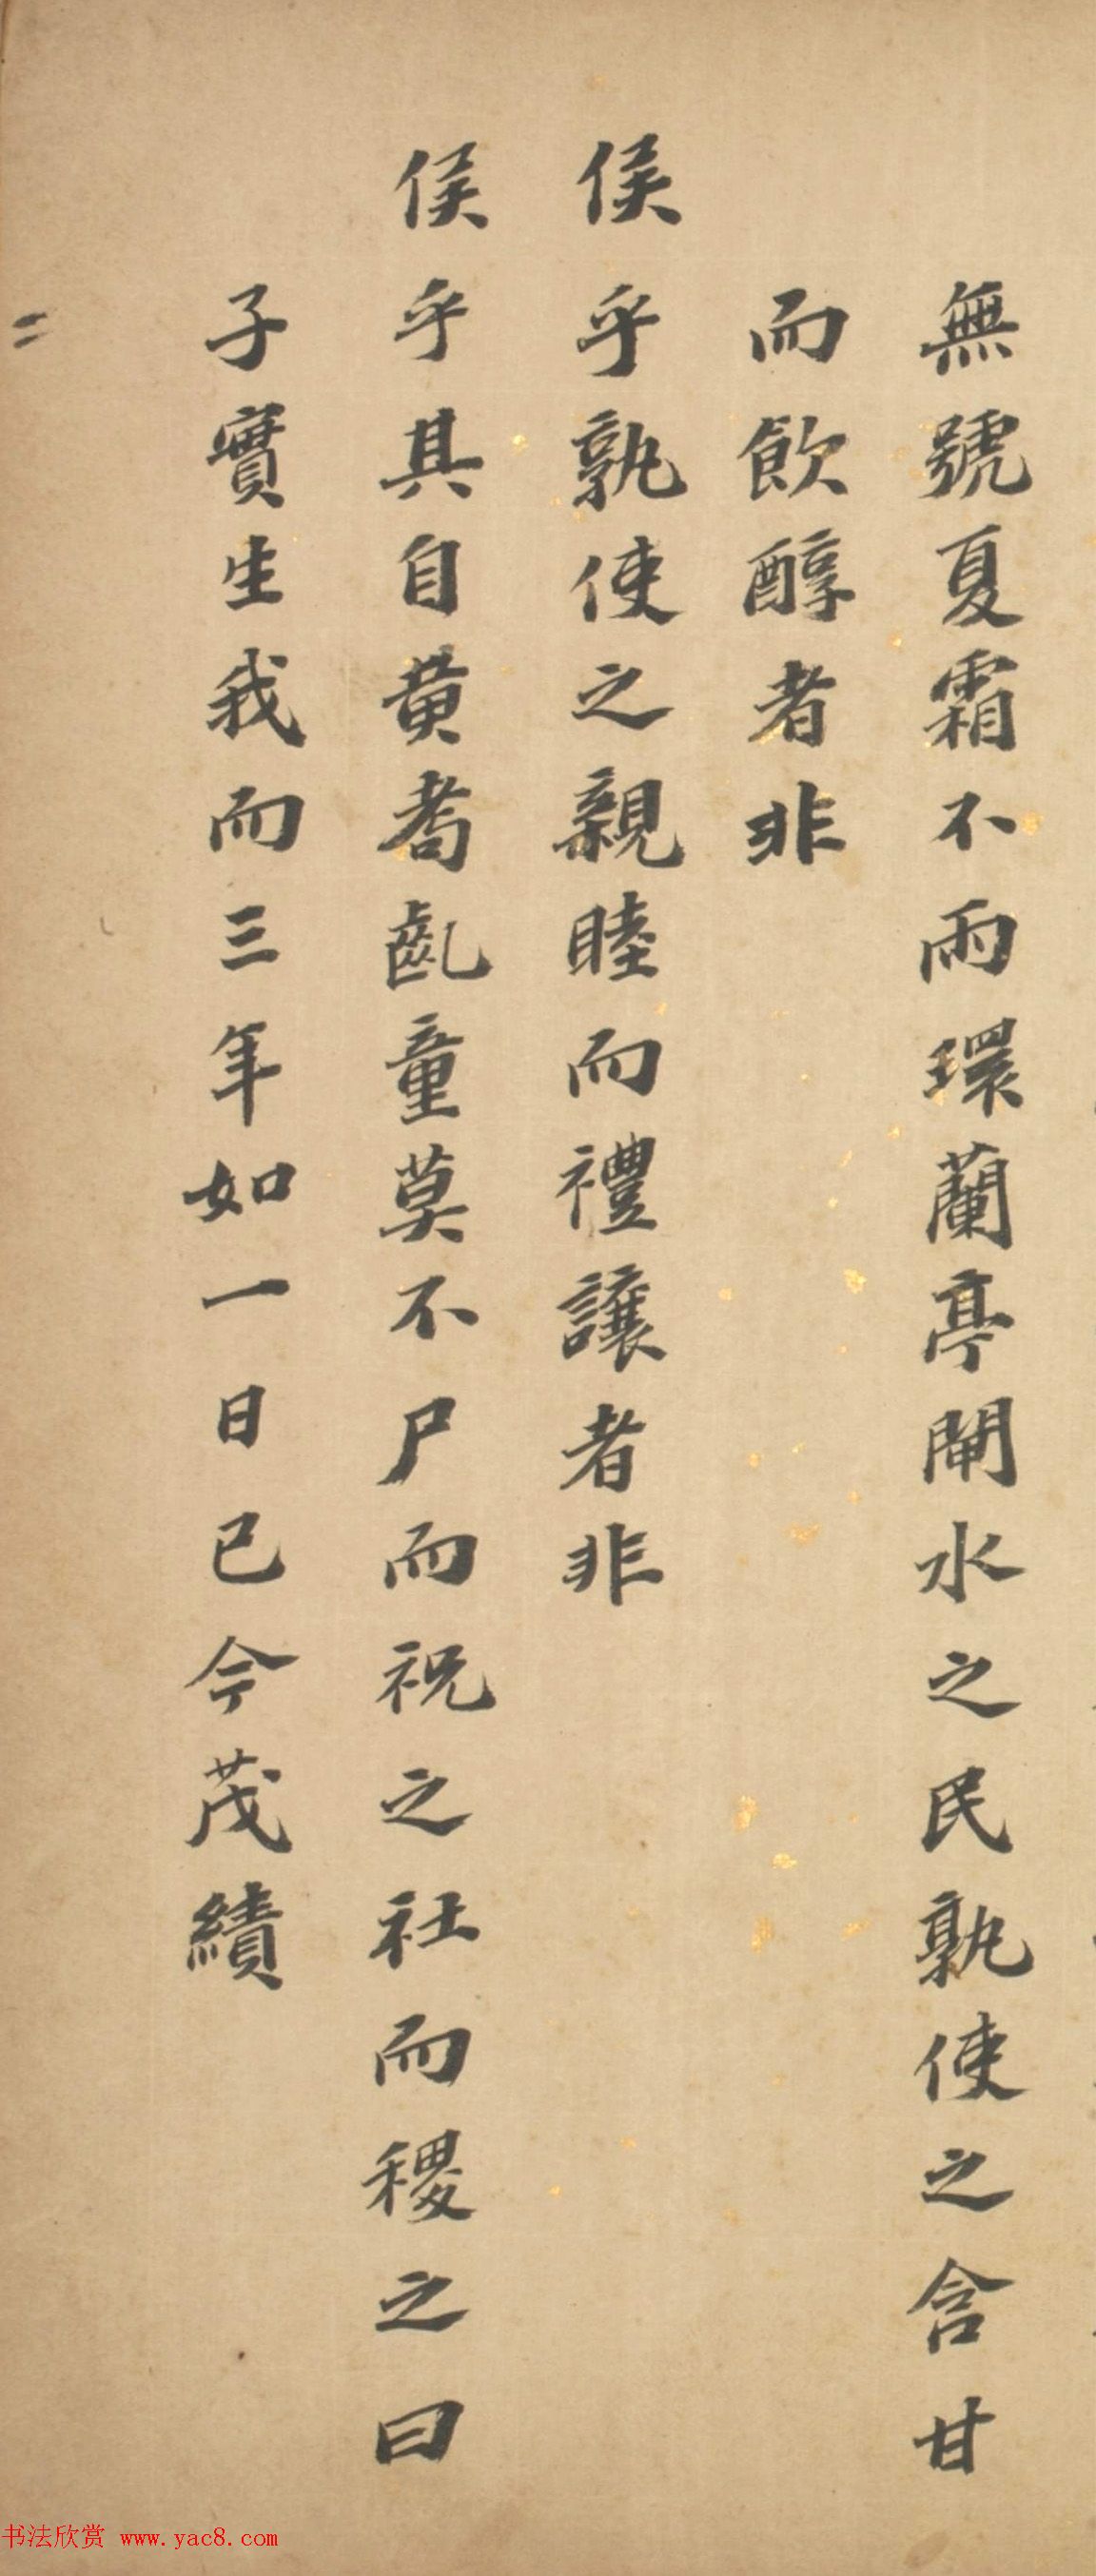 無號夏霜不雨環蘭亭閘水之民孰使之含甘
而飲醇者非
侯乎孰使之親睦而禮讓者非
侯乎其自黄耇齓童莫不尸而祝之社而稷之曰
子實生我而三年如一日已今茂績
书法欣赏 www.yac8.com